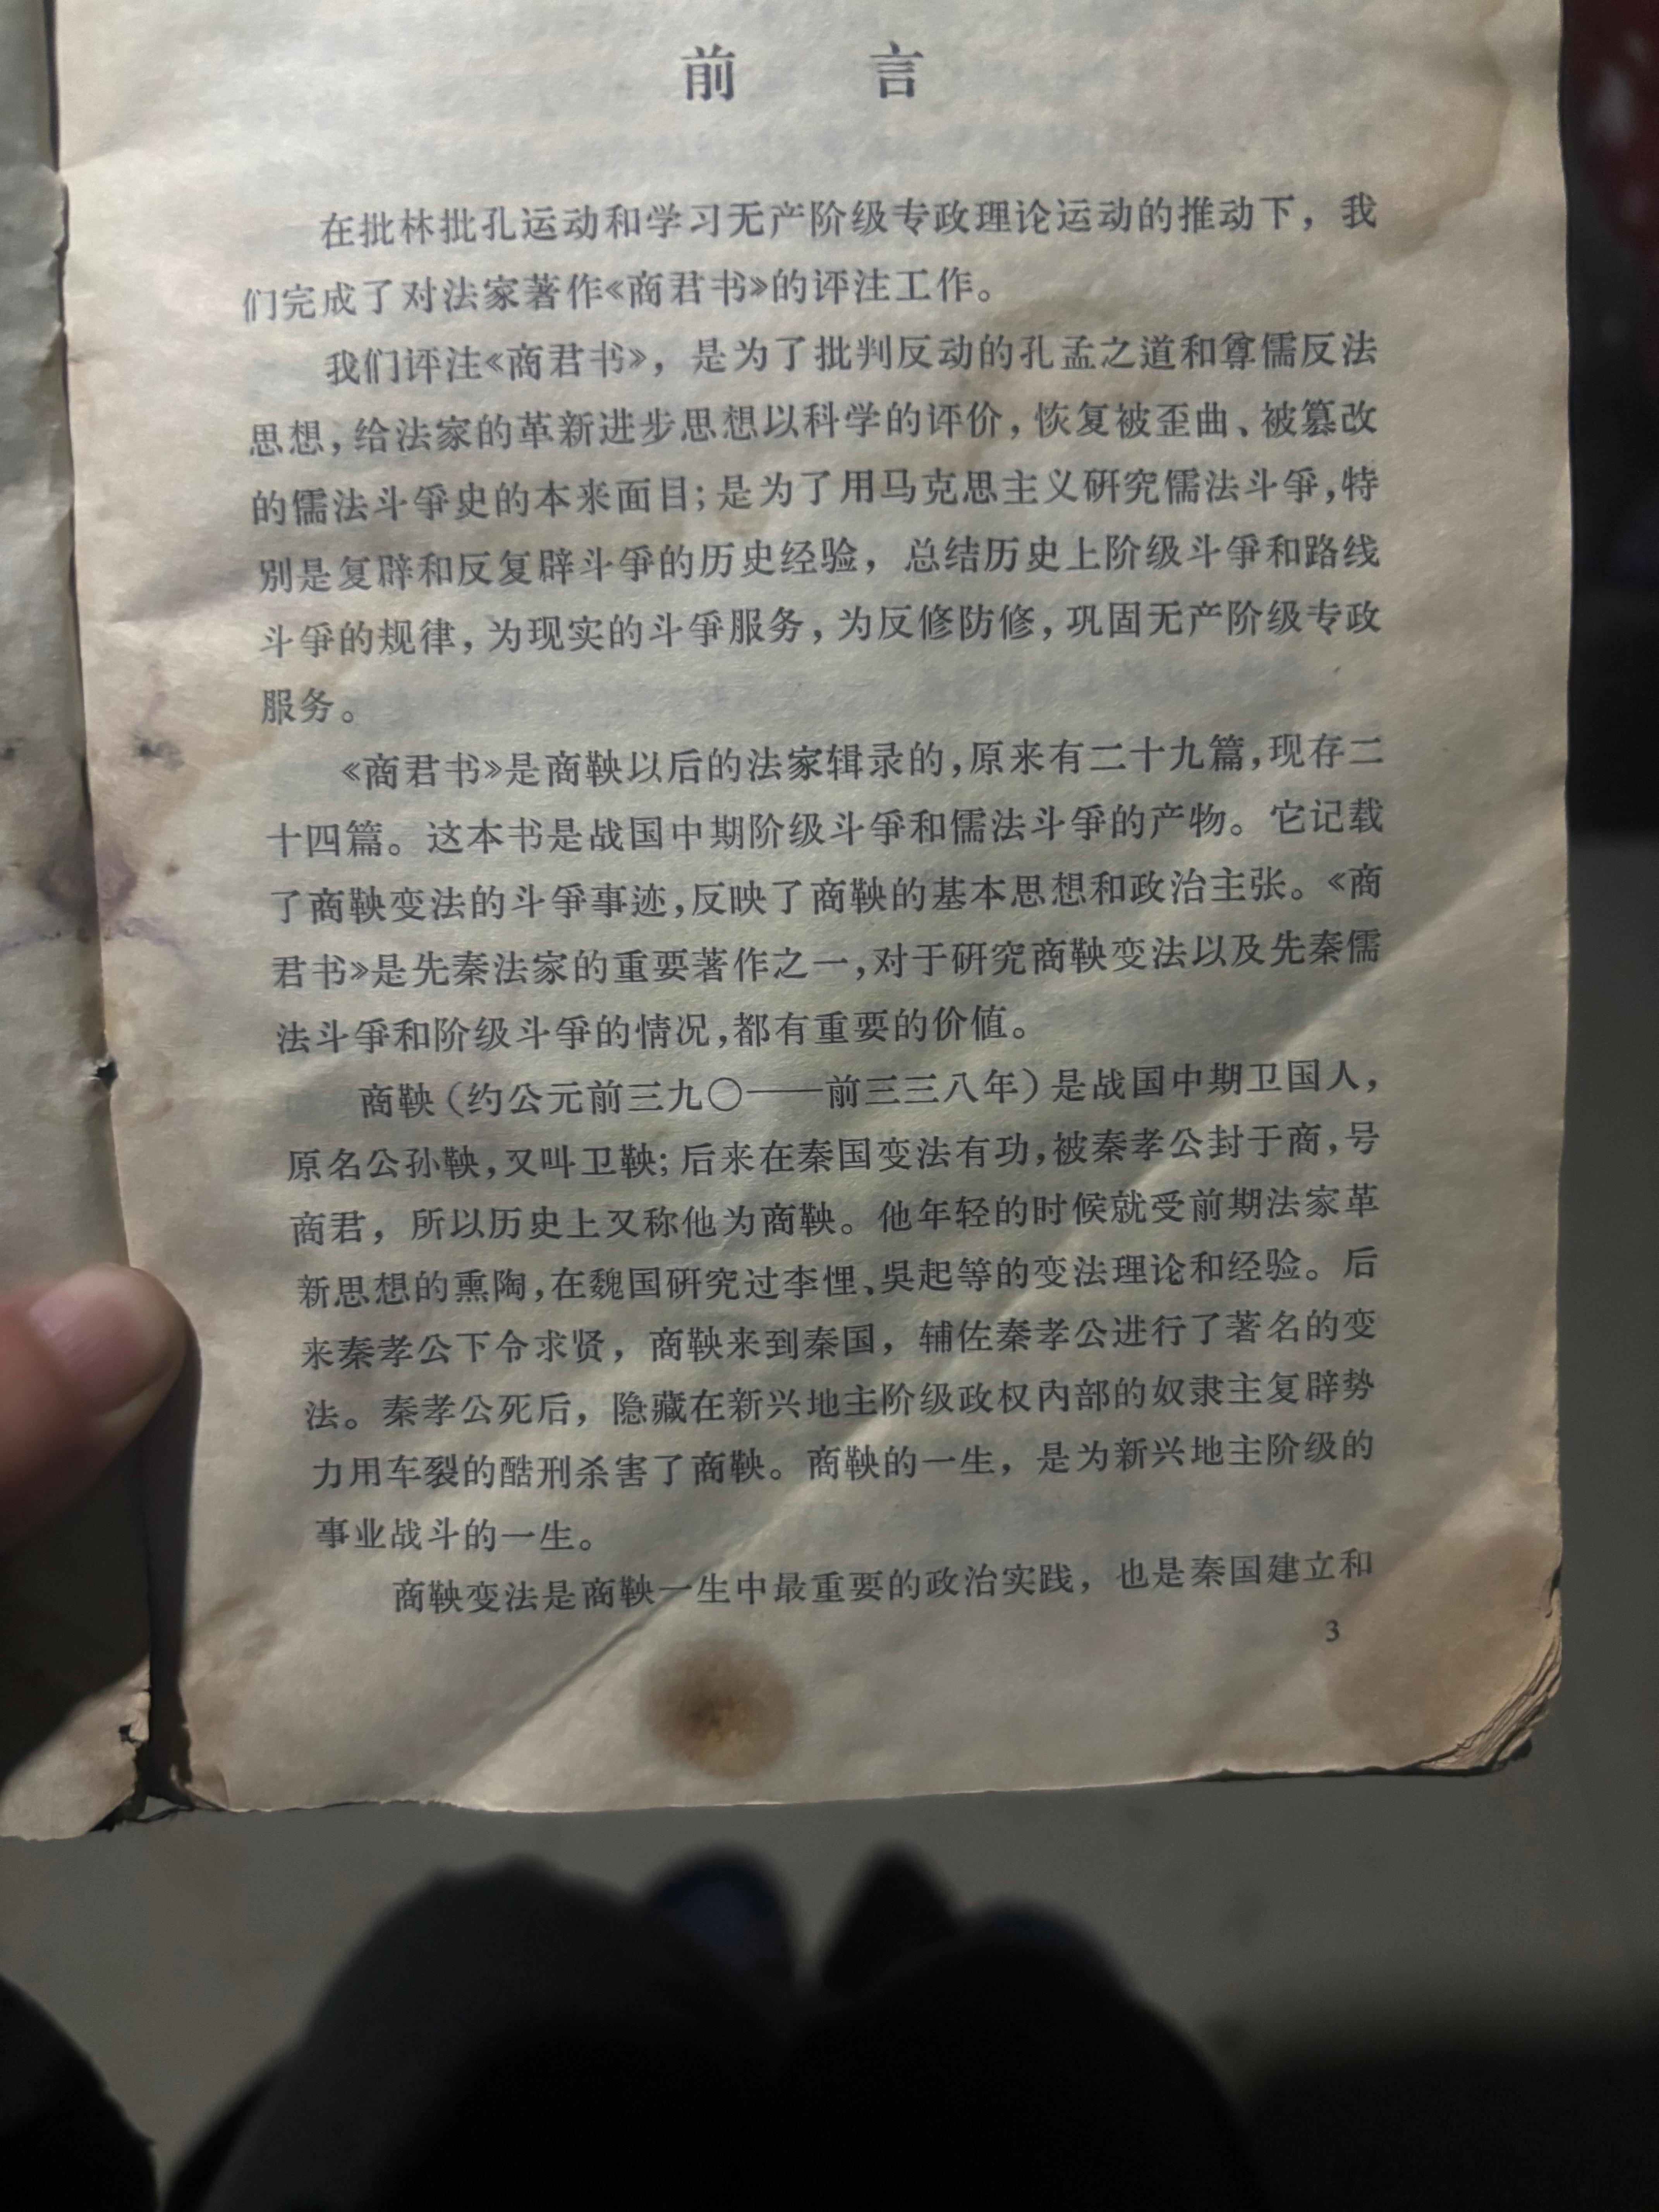 前言
在批林批孔运动和学习无产阶级专政理论运动的推动下，我
们完成了对法家著作《商君书》的评注工作。
我们评注《商君书》，是为了批判反动的孔孟之道和尊儒反法
思想，给法家的革新进步思想以科学的评价，恢复被歪曲、被篡改
的儒法斗爭史的本来面目；是为了用马克思主义研究儒法斗爭，特
别是复辟和反复辟斗爭的历史经验，总结历史上阶级斗爭和路线
斗爭的规律，为现实的斗爭服务，为反修防修，巩固无产阶级专政
服务。
《商君书》是商鞅以后的法家辑录的，原来有二十九篇，现存二
十四篇。这本书是战国中期阶级斗爭和儒法斗爭的产物。它记载
了商鞅变法的斗爭事迹，反映了商鞅的基本思想和政治主张。《商
君书》是先秦法家的重要著作之一，对于研究商鞅变法以及先秦儒
法斗爭和阶级斗爭的情况，都有重要的价值。
商鞅（约公元前三九〇——前三三八年）是战国中期卫国人，
原名公孙鞅，又叫卫鞅；后来在秦国变法有功，被秦孝公封于商，号
商君，所以历史上又称他为商鞅。他年轻的时候就受前期法家革
新思想的熏陶，在魏国研究过李悝、吳起等的变法理论和经验。后
来秦孝公下令求贤，商鞅来到秦国，辅佐秦孝公进行了著名的变
法。秦孝公死后，隐藏在新兴地主阶级政权內部的奴隶主复辟势
力用车裂的酷刑杀害了商鞅。商鞅的一生，是为新兴地主阶级的
事业战斗的一生。
商鞅变法是商鞅一生中最重要的政治实践，也是秦国建立和
3